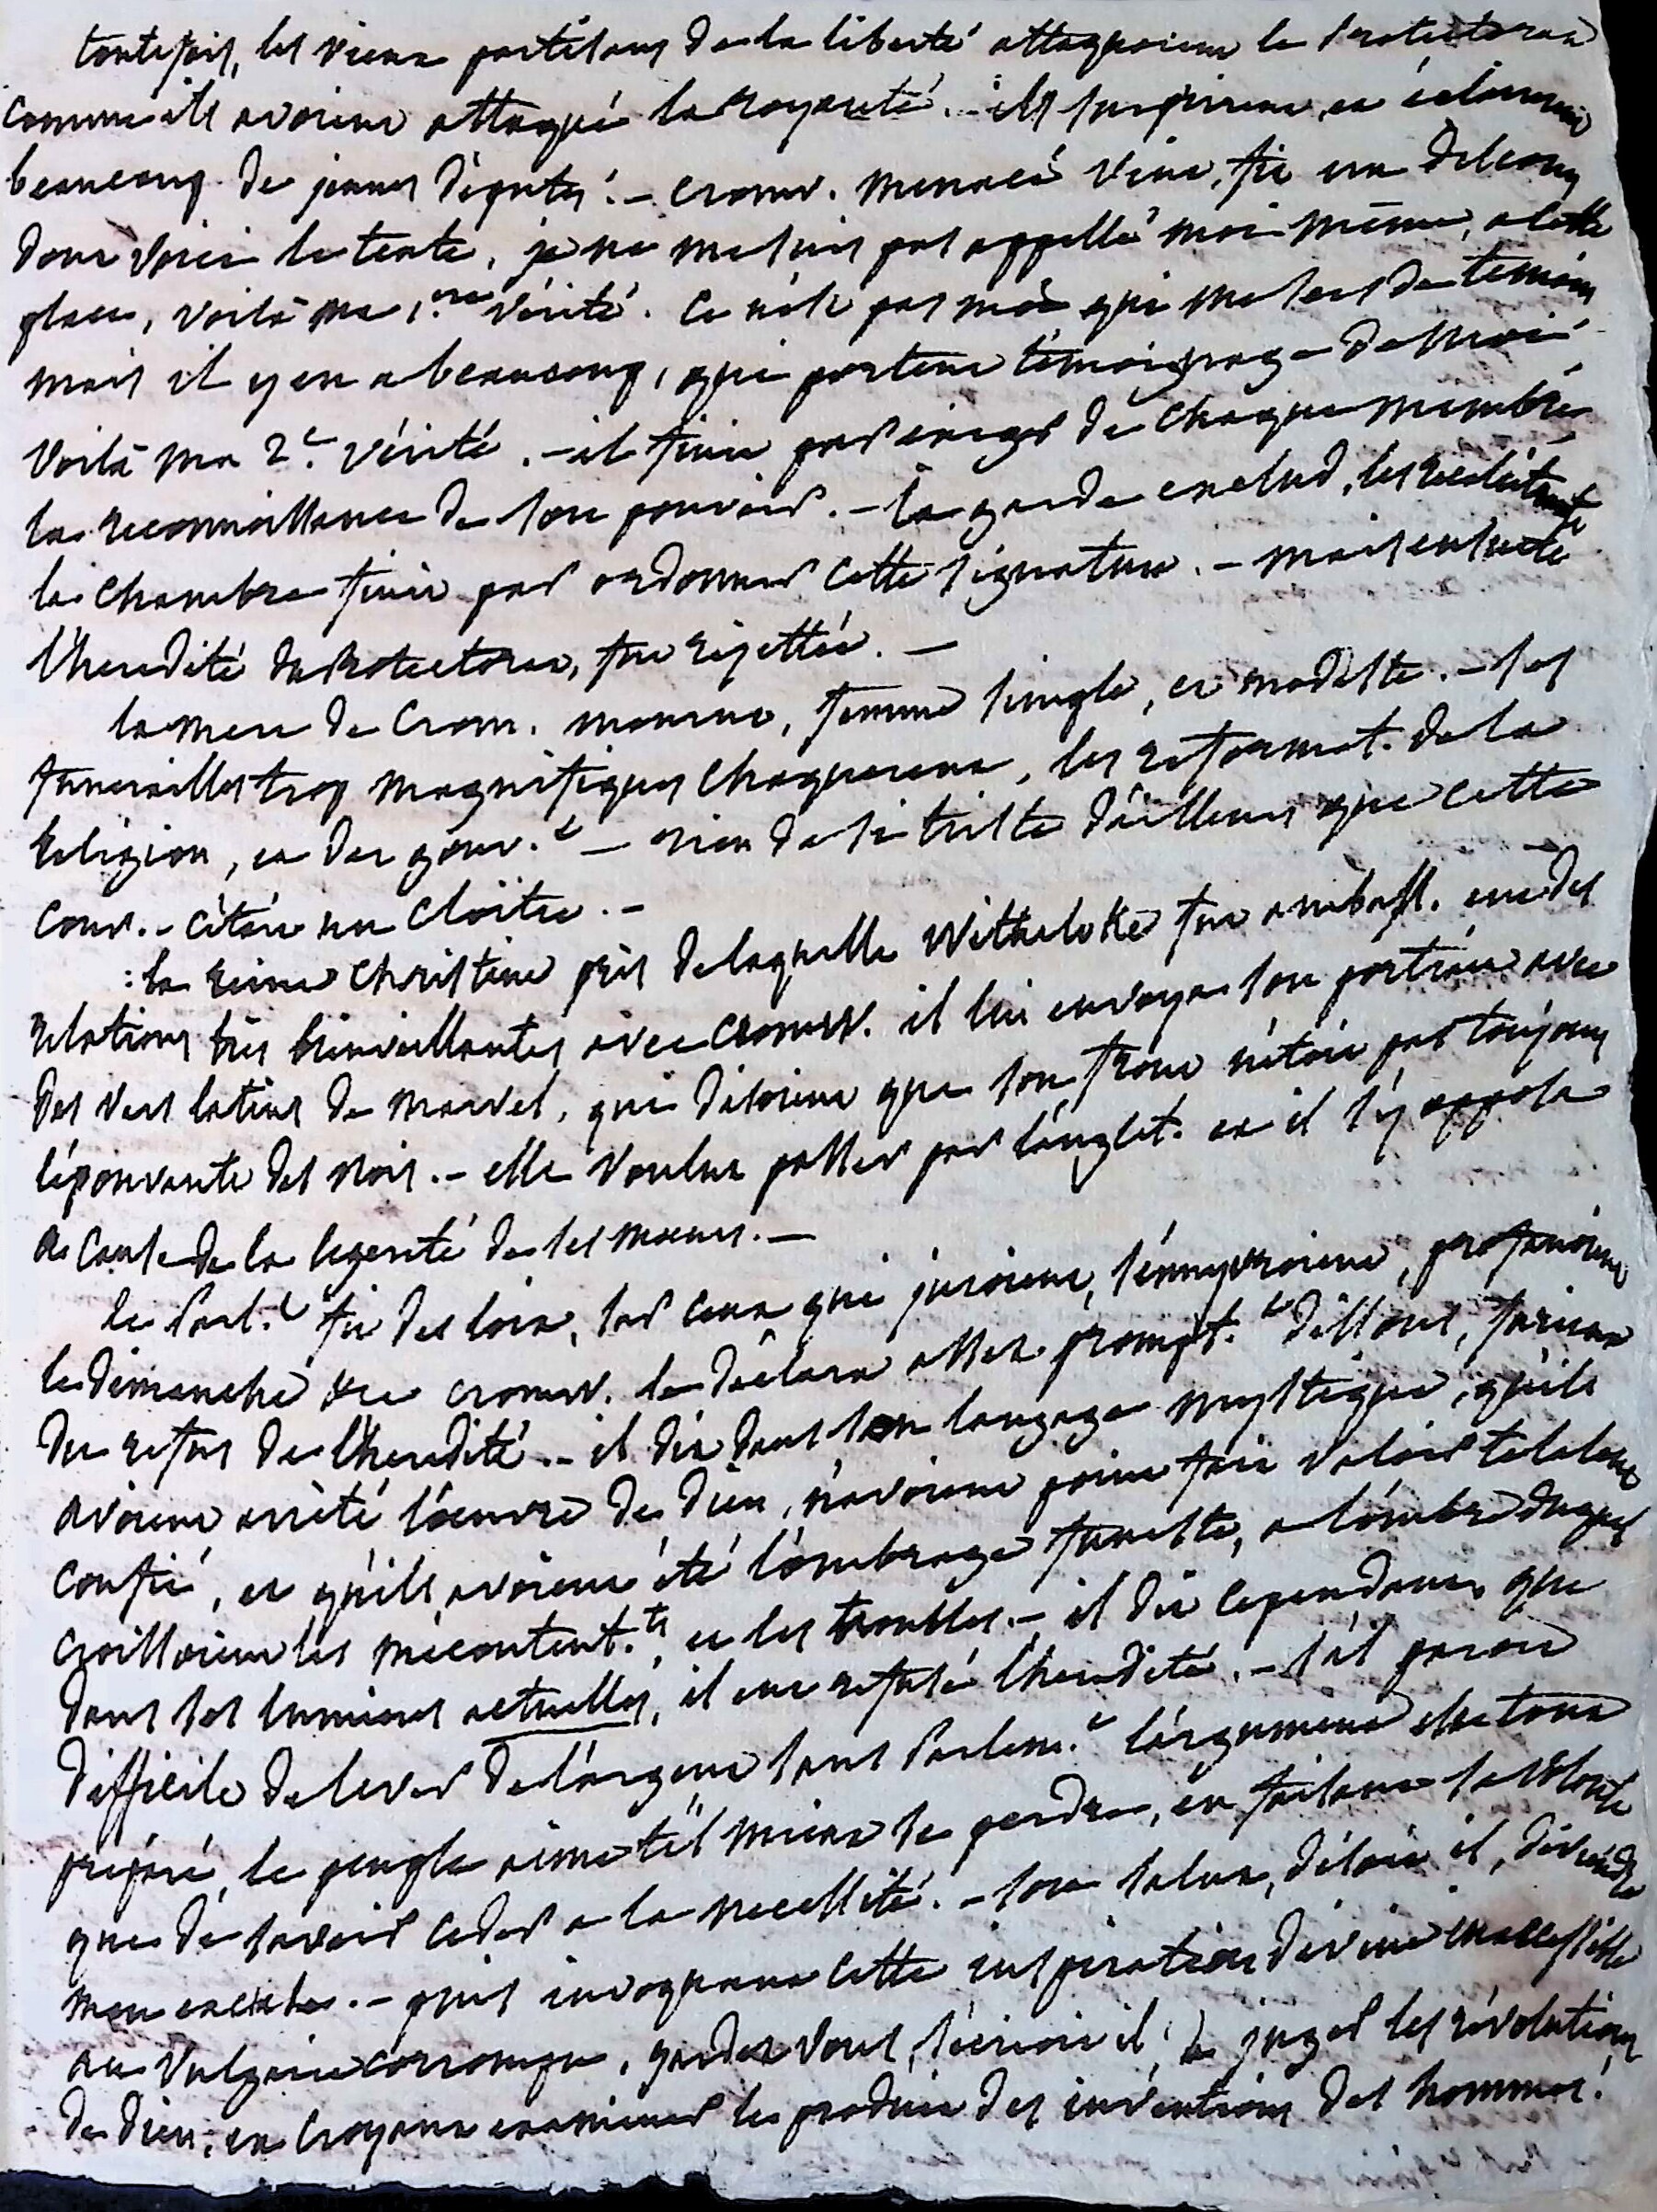 toutefois, les vieux partisans de la liberté attaquoient le Protectorat
comme ils avoient attaqué la royauté. - ils inspirerent, et
beaucoup de jeunes députés. - Cromw. menacé vint, fit un discours
dont voici le texte, je ne me suis pas appellé moi même, a cette
place, voilà ma 1.ere vérité. ce n'est pas moi qui me sers de temoin
mais il y en a beaucoup, qui portent témoignage de moi
voilà ma 2.e vérité. - il finit par exiger de chaque membre
la reconnoissance de son pouvoir. - la garde exclud, les recalcitrants
la chambre finit par ordonner cette signature. - mais ensuite
l'heredité du Protectorat, fut rejettée. -
la mere de Crom. mourut, femme simple, et modeste. - ses
funerailles trop magnifiques choquerent, les reformat. de la
religion, et du gouv.t - rien de si triste d'ailleurs que cette
cour. - c'étoit un cloître. -
: la reine Christine près de laquelle Witheloke fut ambass. eut des
relations très bienveillantes avec Cromw. il lui envoya son portrait avec
des vers latins de Marvel, qui disoient que son front n'étoit pas toujours
l'épouvante des rois. - elle voulut passer par l'anglet. et il s'y opposa
a cause de la legereté de ses mœurs. -
le Parl.t fit des loix, sur ceux qui juroient, s'ennyvroient, profanoient
le dimanche &c Cromw. le déclara assez prompt.t dissous, furieux
du refus de l'heredité. - il dit dans son langage mystique, qu'ils
avoient arrêté l'œuvre de dieu, n'avoient point fait valoir le talent
confié, et qu'ils avoient été l'ombrage funeste, a l'ombre duquel
croissoient les mecontent.ts, et les troubles. - il dit cependant que
dans ses lumieres actuelles, il eut refusé l'heredité. - s'il paroit
difficile de lever de l'argent sans Parlem.t l'argument est tout
préparé, le peuple aime t'il mieux se perdre, en faisant sa volonté
que de savoir ceder a la necessité. - son salut, disoit il,
mon excuse. - puis invoquant cette inspiration divine inaccessible
au vulgaire corrompu, gardez vous, s'écrioit il, de juger les révolutions
de dieu, en croyant examiner le produit des inventions des hommes.